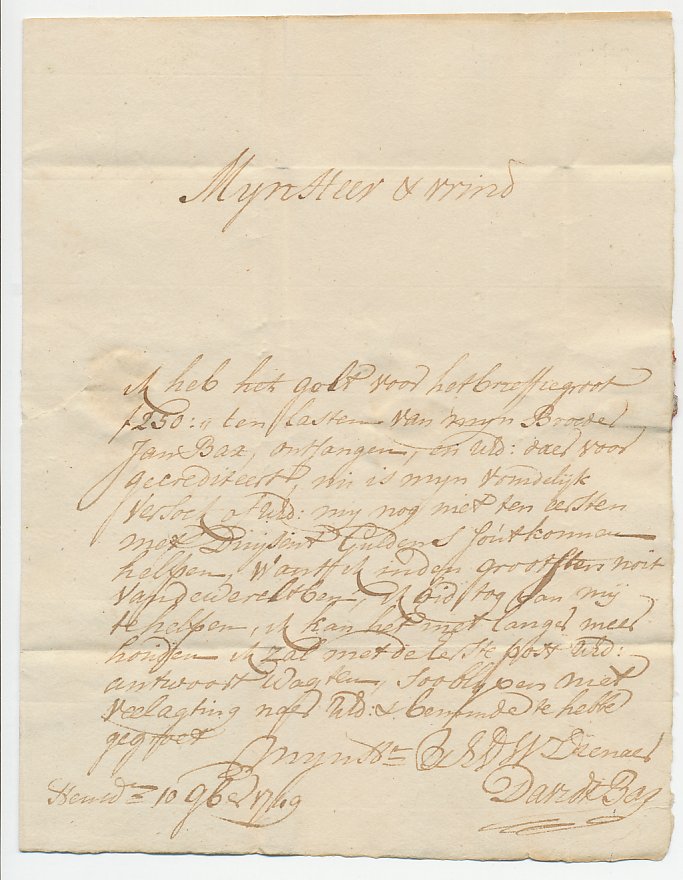 Myn Heer & vrind
ik heb het gelt voor het brieffie groot
f 250:,, ten lasten van myn Broeder
Jan Bax, ontfangen, en UEd: daer voor
gecrediteert, nu is myn vrindelyk
versoek of UEd: my nog niet ten eersten
met Duijsent Guldens sout konnen
helpen, want ik in den grootsten noit
van de werelt ben, ik bid tog van mij
te helpen, ik kan het niet langer meer
houden ik zal met de eerste post UEd:
antwoort wagten, soo blyve met
veel agting naer UEd: & beminde te hebbe
gegroet
myn Hr UEDW Dienaer
David Bax
Heusdn 10 9ber 1749